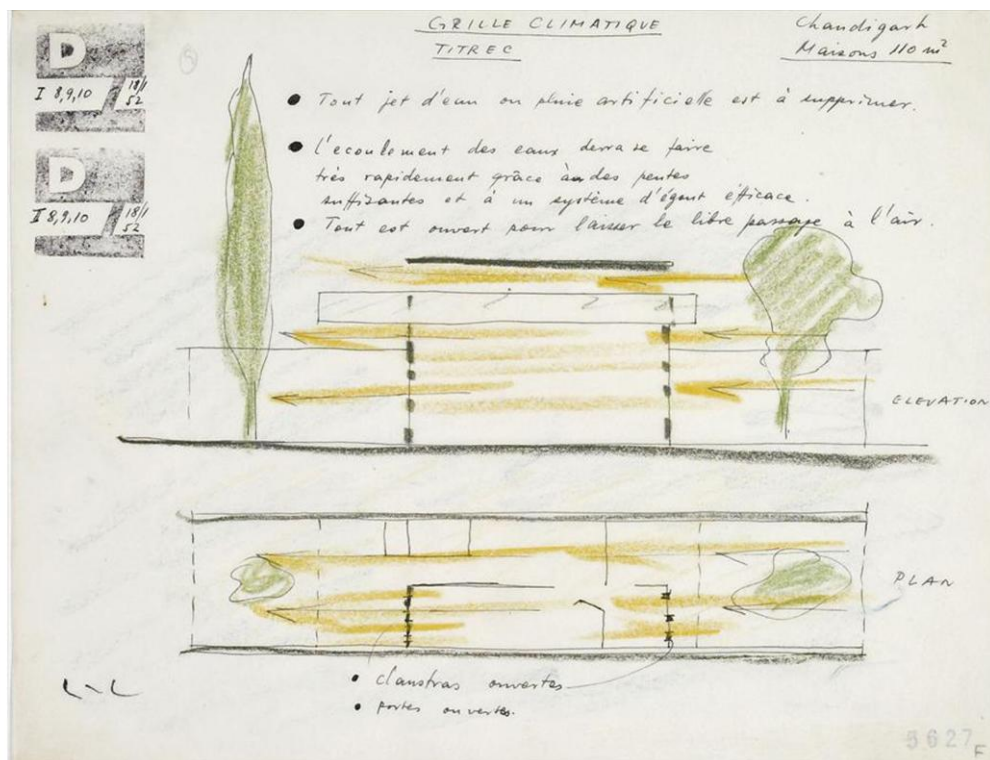 GRILLE CLIMATIQUE
TITRE C
Chandigarh
Maisons 110 m²
D
I 8,9,10 18/1 52
D
I 8,9,10 18/1 52
• Tout jet d'eau ou pluie artificielle est à supprimer.
• l'ecoulement des eaux devra se faire
très rapidement grâce à des pentes
suffisantes et à un système d'égout efficace.
• Tout est ouvert pour laisser le libre passage à l'air.
ELEVATION
PLAN
• claustras ouvertes
• portes ouvertes.
5627
F